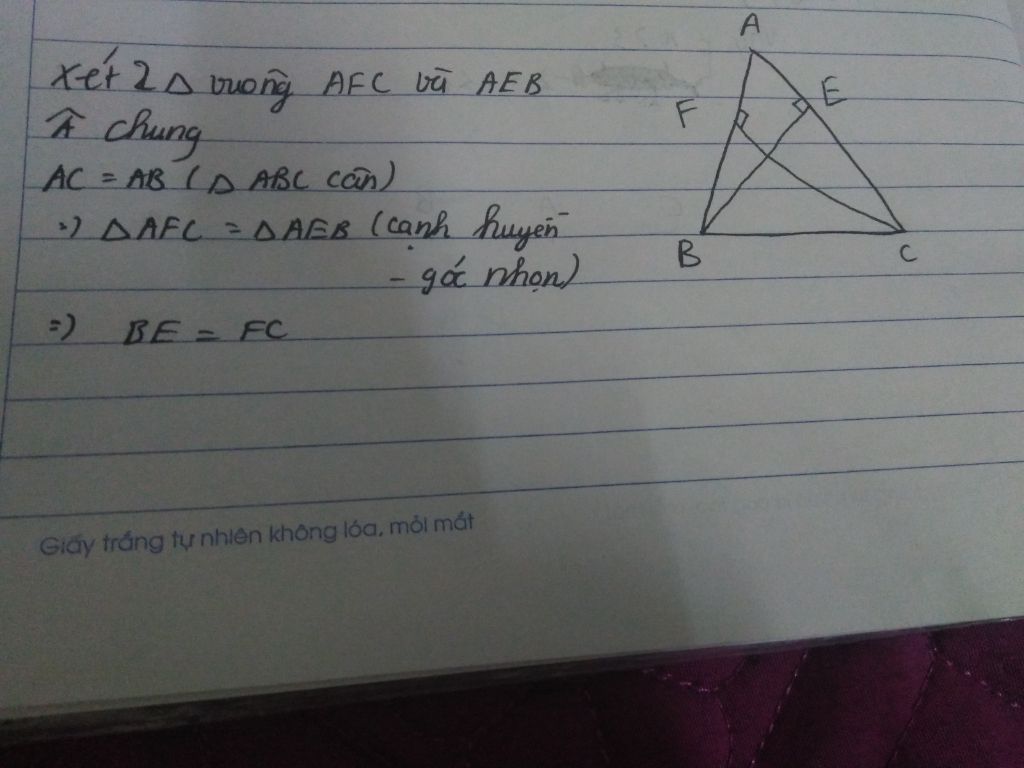 Xét 2 Δ vuông AFC và AEB
Â chung
AC = AB (Δ ABC cân)
=) Δ AFC = Δ AEB (cạnh huyền
- góc nhọn)
=) BE = FC
A
F
E
B
C
Giấy trắng tự nhiên không lóa, mỏi mắt